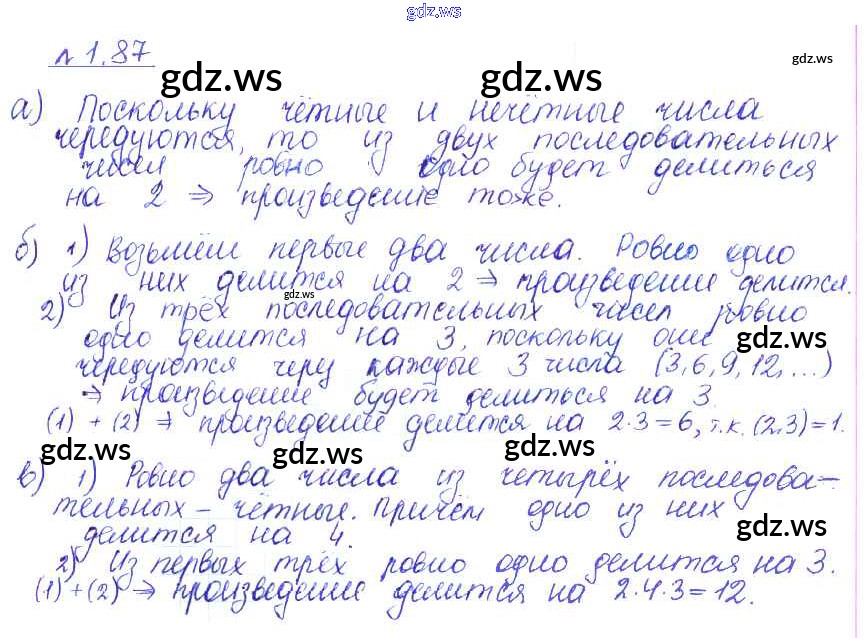 gdz.ws
№ 1.87
gdz.ws
gdz.ws
gdz.ws
а) Поскольку чётные и нечётные числа
чередуются, то из двух последовательных
чисел ровно одно будет делиться
на 2 ⇒ произведение тоже.
б) 1) Возьмём первые два числа. Ровно одно
из них делится на 2 ⇒ произведение делится.
gdz.ws
2) Из трёх последовательных чисел ровно
одно делится на 3, поскольку они
gdz.ws
чередуются через каждые 3 числа (3,6,9,12,...)
⇒ произведение будет делиться на 3.
(1) + (2) ⇒ произведение делится на 2·3=6, т.к. (2,3)=1.
gdz.ws
gdz.ws
gdz.ws
в) 1) Ровно два числа из четырёх последова-
тельных – чётные. Причём одно из них
gdz.ws
делится на 4.
2) Из первых трёх ровно одно делится на 3.
(1)+(2) ⇒ произведение делится на 2·4·3=12.